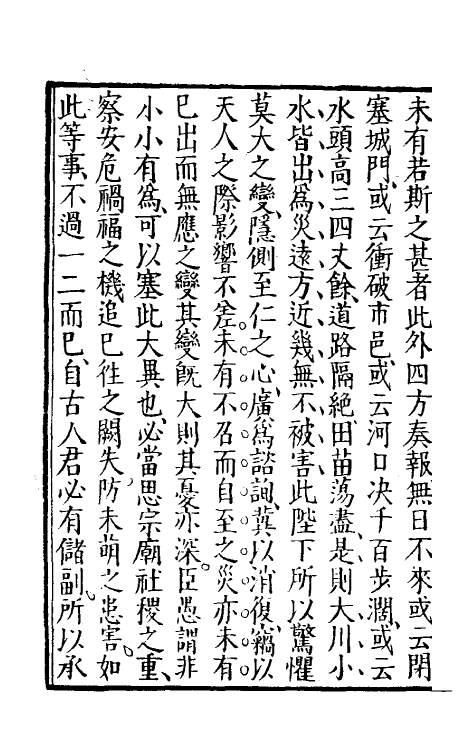 未有若斯之甚者此外四方奏報無日不來或云閉
塞城門、或云衝破市邑、或云河口決千百步濶、或云
水頭高三四丈餘、道路隔絶、田苗蕩盡、是則大川小
水皆出爲災、遠方近幾無不被害、此陛下所以驚懼
莫大之變、隱惻至仁之心、廣爲諮詢、冀以消復、竊以
天人之際影響不差、未有不召而自至之災、亦未有
巳出而無應之變、其變旣大則其憂亦深。臣愚謂非
小小有爲、可以塞此大異也、必當思宗廟社稷之重、
察安危禍福之機、追巳徃之闕失、防未萌之患害。如
此等事、不過一二而巳、自古人君必有儲副。所以承